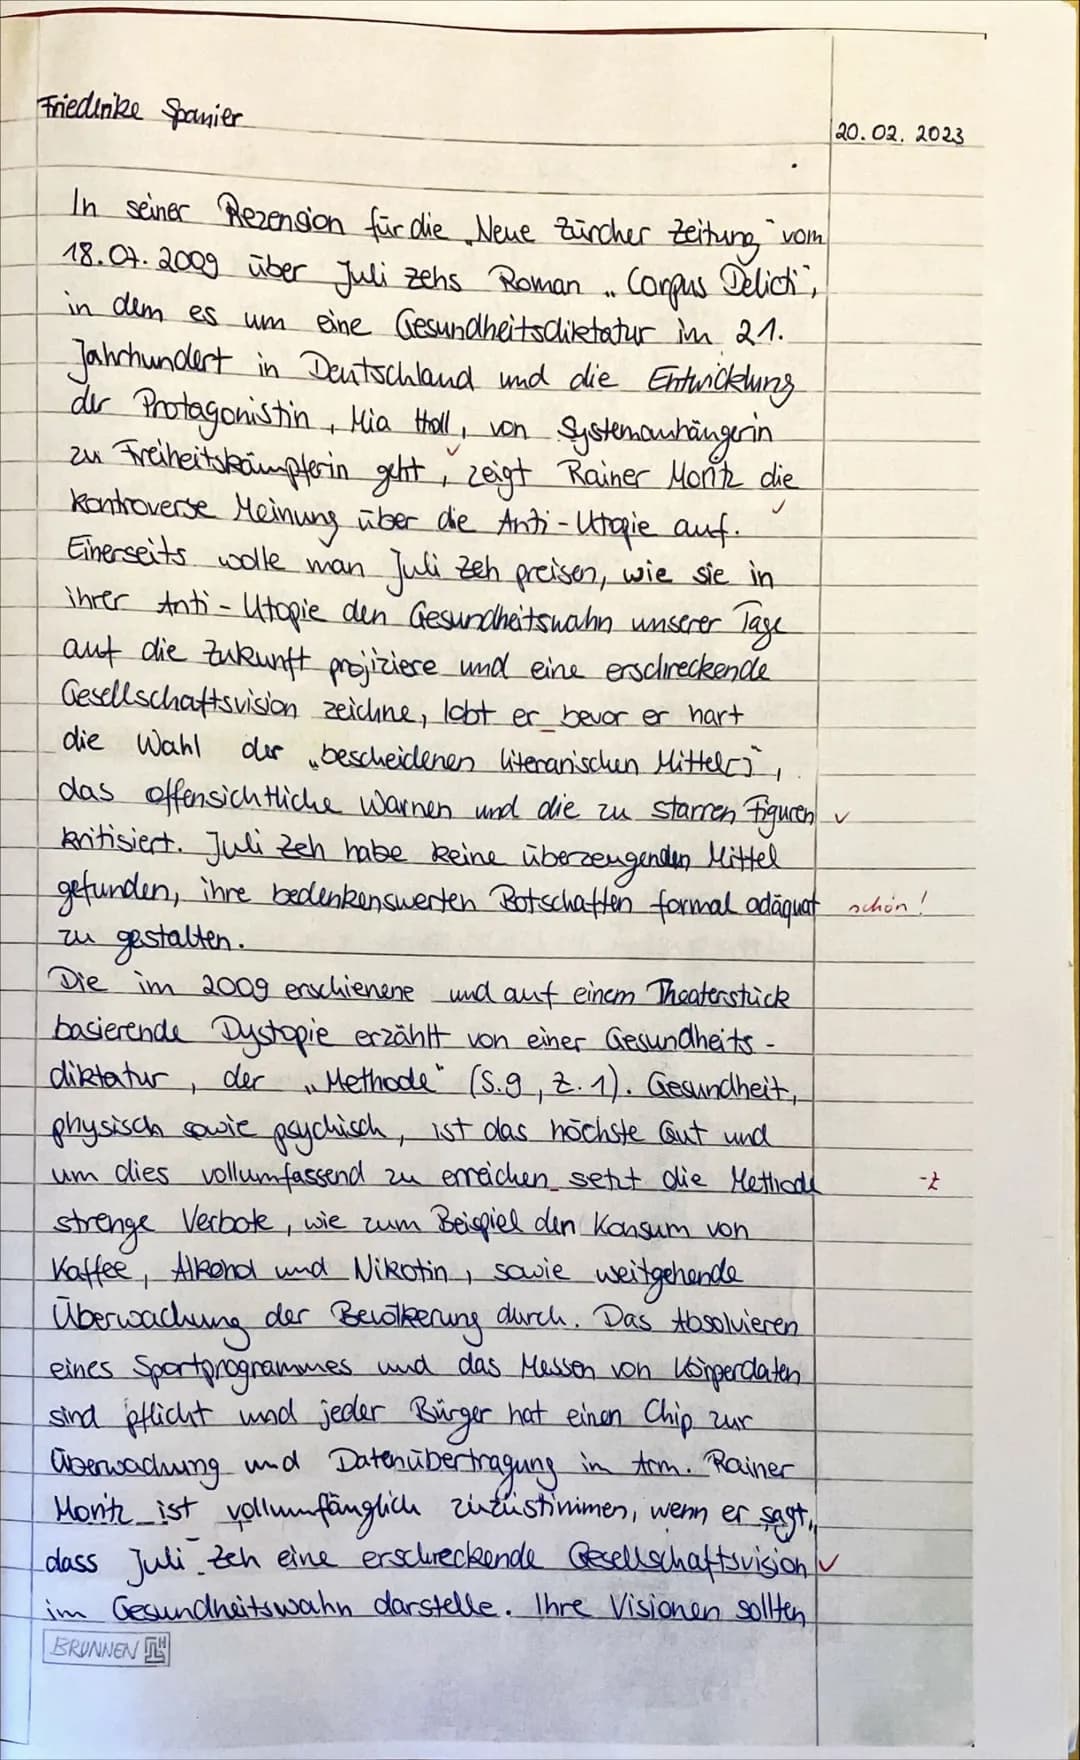 Friederike Spanier
20.02.2023
In seiner Rezension für die „Neue Zürcher Zeitung" vom
18.07.2009 über Juli Zehs Roman „Corpus Delicti",
in dem es um eine Gesundheitsdiktatur im 21.
Jahrhundert in Deutschland und die Entwicklung
der Protagonistin, Mia Holl, von Systemanhängerin
zu Freiheitskämpferin geht, zeigt Rainer Moritz die
kontroverse Meinung über die Anti-Utopie auf.
Einerseits wolle man Juli Zeh preisen, wie sie in
ihrer Anti-Utopie den Gesundheitswahn unserer Tage
auf die Zukunft projiziere und eine erschreckende
Gesellschaftsvision zeichne, lobt er bevor er hart
die Wahl der „bescheidenen literarischen Mittel[]",
das offensichtliche Warnen und die zu starren Figuren
kritisiert. Juli Zeh habe keine überzeugenden Mittel
gefunden, ihre bedenkenswerten Botschaften formal adäquat schön!
zu gestalten.
Die im 2009 erschienene und auf einem Theaterstück
basierende Dystopie erzählt von einer Gesundheits-
diktatur, der „Methode" (S.9, Z.1). Gesundheit,
physisch sowie psychisch, ist das höchste Gut und
um dies vollumfassend zu erreichen setzt die Methode -z
strenge Verbote, wie zum Beispiel den Konsum von
Kaffee, Alkohol und Nikotin, sowie weitgehende
Überwachung der Bevölkerung durch. Das Absolvieren
eines Sportprogrammes und das Messen von Körperdaten
sind pflicht und jeder Bürger hat einen Chip zur
Überwachung und Datenübertragung im Arm. Rainer
Moritz ist vollumfänglich zuzustimmen, wenn er sagt,
dass Juli Zeh eine erschreckende Gesellschaftsvision
im Gesundheitswahn darstelle. Ihre Visionen sollten
BRUNNEN